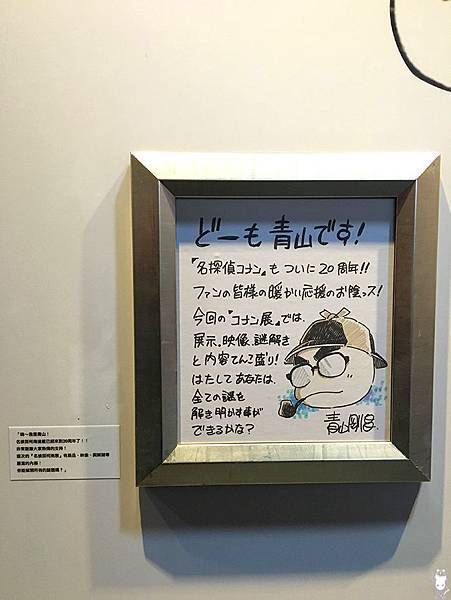 どーも青山です!
『名探偵コナン』もついに20周年!!
ファンの皆様の暖かい応援のお陰っス!
今回の"コナン展"では、
展示、映像、謎解き
と内容てんこ盛り!
はたしてあなたは、
全ての謎を
解き明かす事が
できるかな?
青山剛昌
「嗨~我是青山!
名偵探柯南連載已經來到20周年了!!
非常謝謝大家熱情的支持!
這次的「名偵探柯南展」有展品、映像、與解謎等
豐富的內容!
你能解開所有的謎題嗎?」